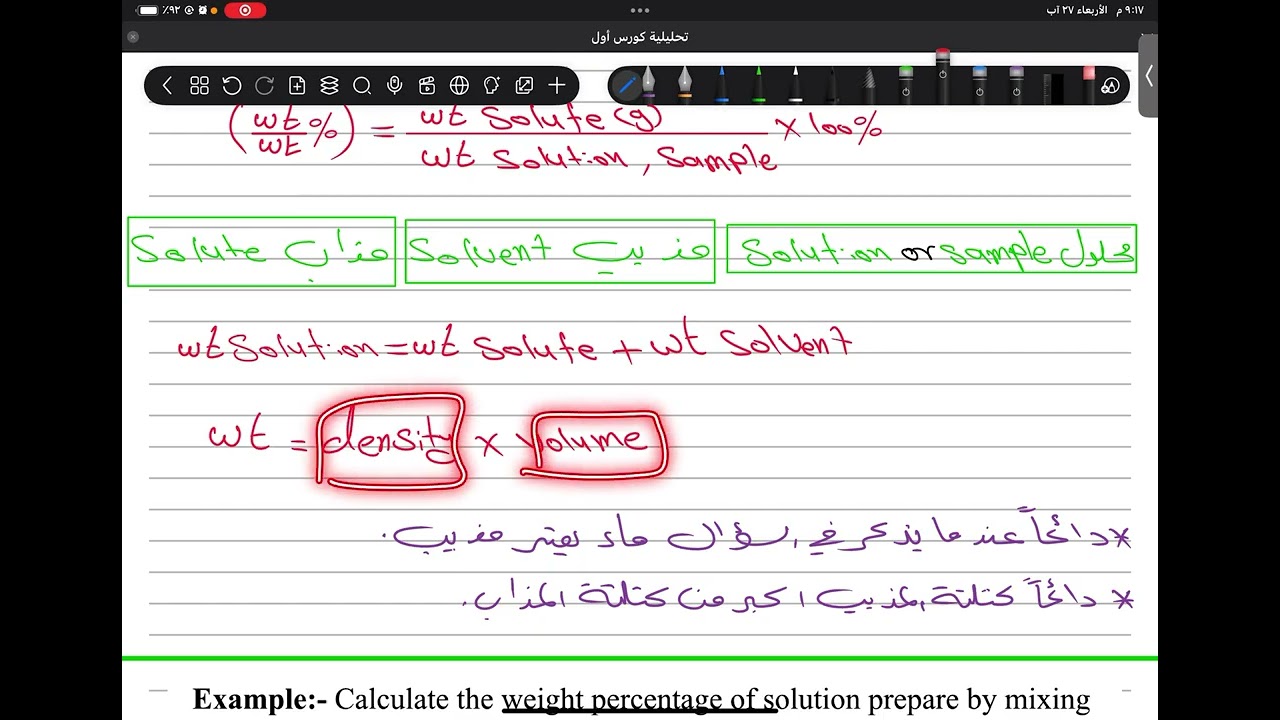 ٩:١٧ م الأربعاء ٢٧ آب
٪٩٢
تحليلية كورس أول
(wt/wt %) = wt Solute (g) / wt Solution, Sample × 100%
Solute مذاب
Solvent مذيب
Solution or sample محلول
wt Solution = wt Solute + wt Solvent
wt = density × volume
* دائماً عند ما يذكر في السؤال ماء يعتبر مذيب.
* دائماً كتلتة المذيب اكبر من كتلتة المذاب.
Example:- Calculate the weight percentage of solution prepare by mixing